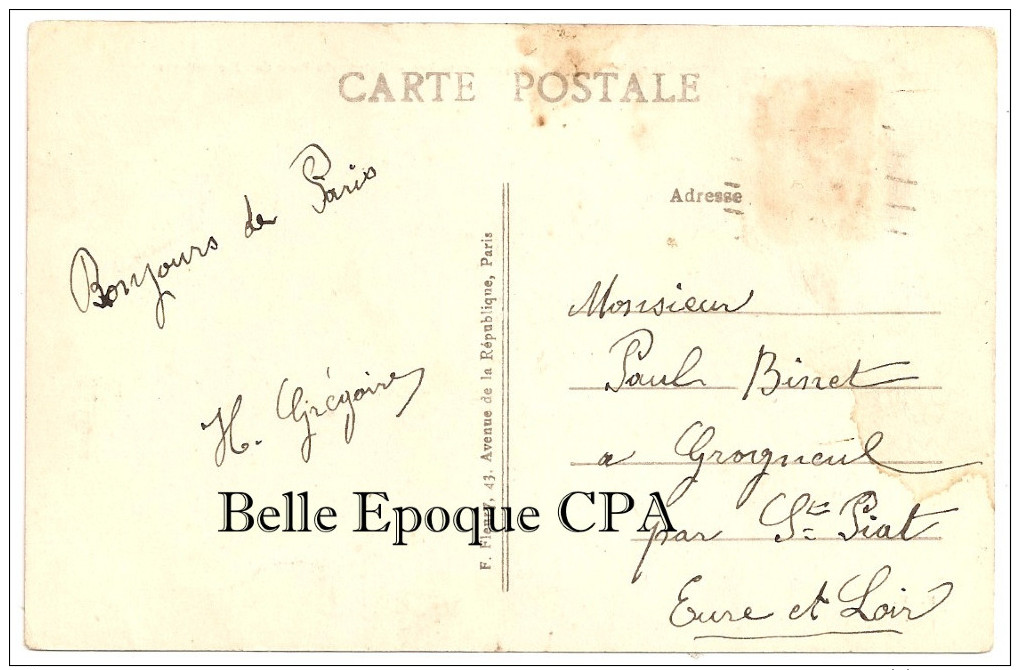 CARTE POSTALE
Bonjours de Paris
H. Grégoire
F. Fleury, 43, Avenue de la République, Paris
Adresse
Monsieur
Paul Binet
a Grogneul
par St Piat
Eure et Loir
Belle Epoque CPA